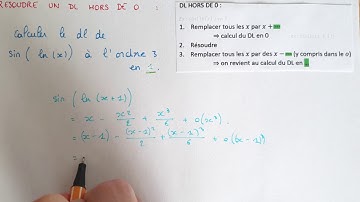 RÉSOUDRE UN DL HORS DE 0 :
Calculer le dl de
sin ( ln (x)) à l'ordre 3
en 1.
DL HORS DE 0 :
1. Remplacer tous les x par x +
⇒ calcul du DL en 0
2. Résoudre
3. Remplacer tous les x par des x − (y compris dans le o)
⇒ on revient au calcul du DL en
sin ( ln (x + 1))
= x - x²/2 + x³/6 + o(x³).
= (x-1) - (x-1)²/2 + (x-1)³/6 + o((x-1)³)
=